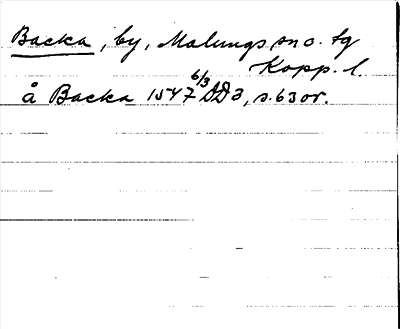 Backa, by, Malungs sn o. tg
Kopp. l.
å Backa 1547 6/3 DD 3, s. 63 or.